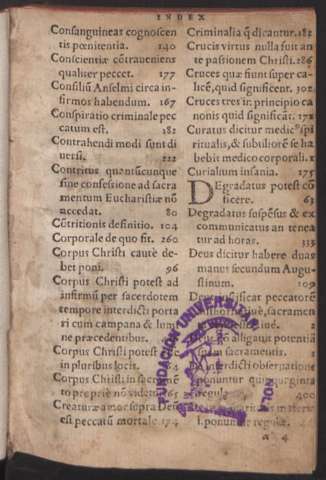 INDEX
Consanguineas cognoscen
tis pœnitentia. 140
Conscientiæ cõtraueniens
qualiter peccet. 177
Consiliũ Anselmi circa in-
firmos habendum. 167
Conspiratio criminale pec
catum est. 182
Contrahendi modi sunt di
uersi. 222
Contritus quantũcunque
sine confessione ad sacra
mentum Eucharistiæ nõ
accedat. 80
Cõtritionis definitio. 104
Corporale de quo fit. 260
Corpus Christi cautè de-
bet poni. 96
Corpus Christi potest ad
infirmũ per sacerdotem
tempore interdicti porta
ri cum campana & lumi
ne præcedentibus.
Corpus Christi potest esse
in pluribus locis.
Corpus Christi in sacramẽ
to propriè nõ videtur
Creaturæ amor supra Deũ
est peccatũ mortale 174
Criminalia q̃ dicantur. 182
Crucis virtus nulla fuit an
te passionem Christi. 286
Cruces quæ fiunt super ca-
licẽ, quid significent. 302
Cruces tres in principio ca
nonis quid significãt. 172
Curatus dicitur medicus spi
ritualis, & subtiliorẽ se ha
bebit medico corporali. x
Curialium insania. 175
Degradatus potest cõ
ficere. 63
Degradatus suspẽsus & ex
communicatus an tenea
tur ad horas. 333
Deus dicitur habere duas
manus secundum Augu-
stinum. 109
Deus iustificat peccatorẽ
sacramẽta
alligauit potentiã
suam sacramentis.
De interdicti obseruatione
ponuntur quinquaginta
regulæ 400
materia
ponuntur regulæ
a 4
FUNDACIÓN UNIVERSITARIA